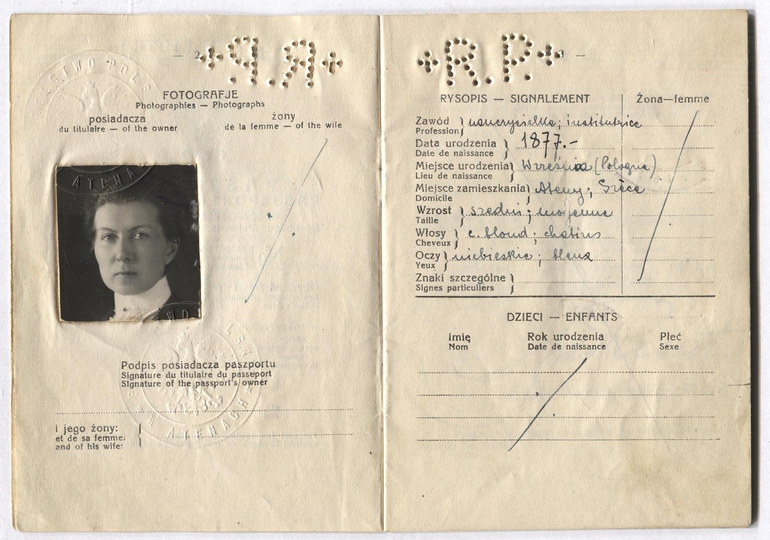 — 2
+R.P.+
FOTOGRAFJE
Photographies — Photographs
posiadacza
du titulaire — of the owner
żony
de la femme — of the wife
ATENACH
Podpis posiadacza paszportu
Signature du titulaire du passeport
Signature of the passport's owner
ATENACH
i jego żony:
et de sa femme:
and of his wife:
+R.P.+
3 —
RYSOPIS — SIGNALEMENT
Żona—femme
Zawód
Profession
nauczycielka; institutrice
Data urodzenia
Date de naissance
1877.-
Miejsce urodzenia
Lieu de naissance
Września (Pologne)
Miejsce zamieszkania
Domicile
Ateny; Grèce
Wzrost
Taille
średni; moyenne
Włosy
Cheveux
c. blond; chatins
Oczy
Yeux
niebieskie; bleus
Znaki szczególne
Signes particuliers
DZIECI — ENFANTS
Imię
Nom
Rok urodzenia
Date de naissance
Płeć
Sexe